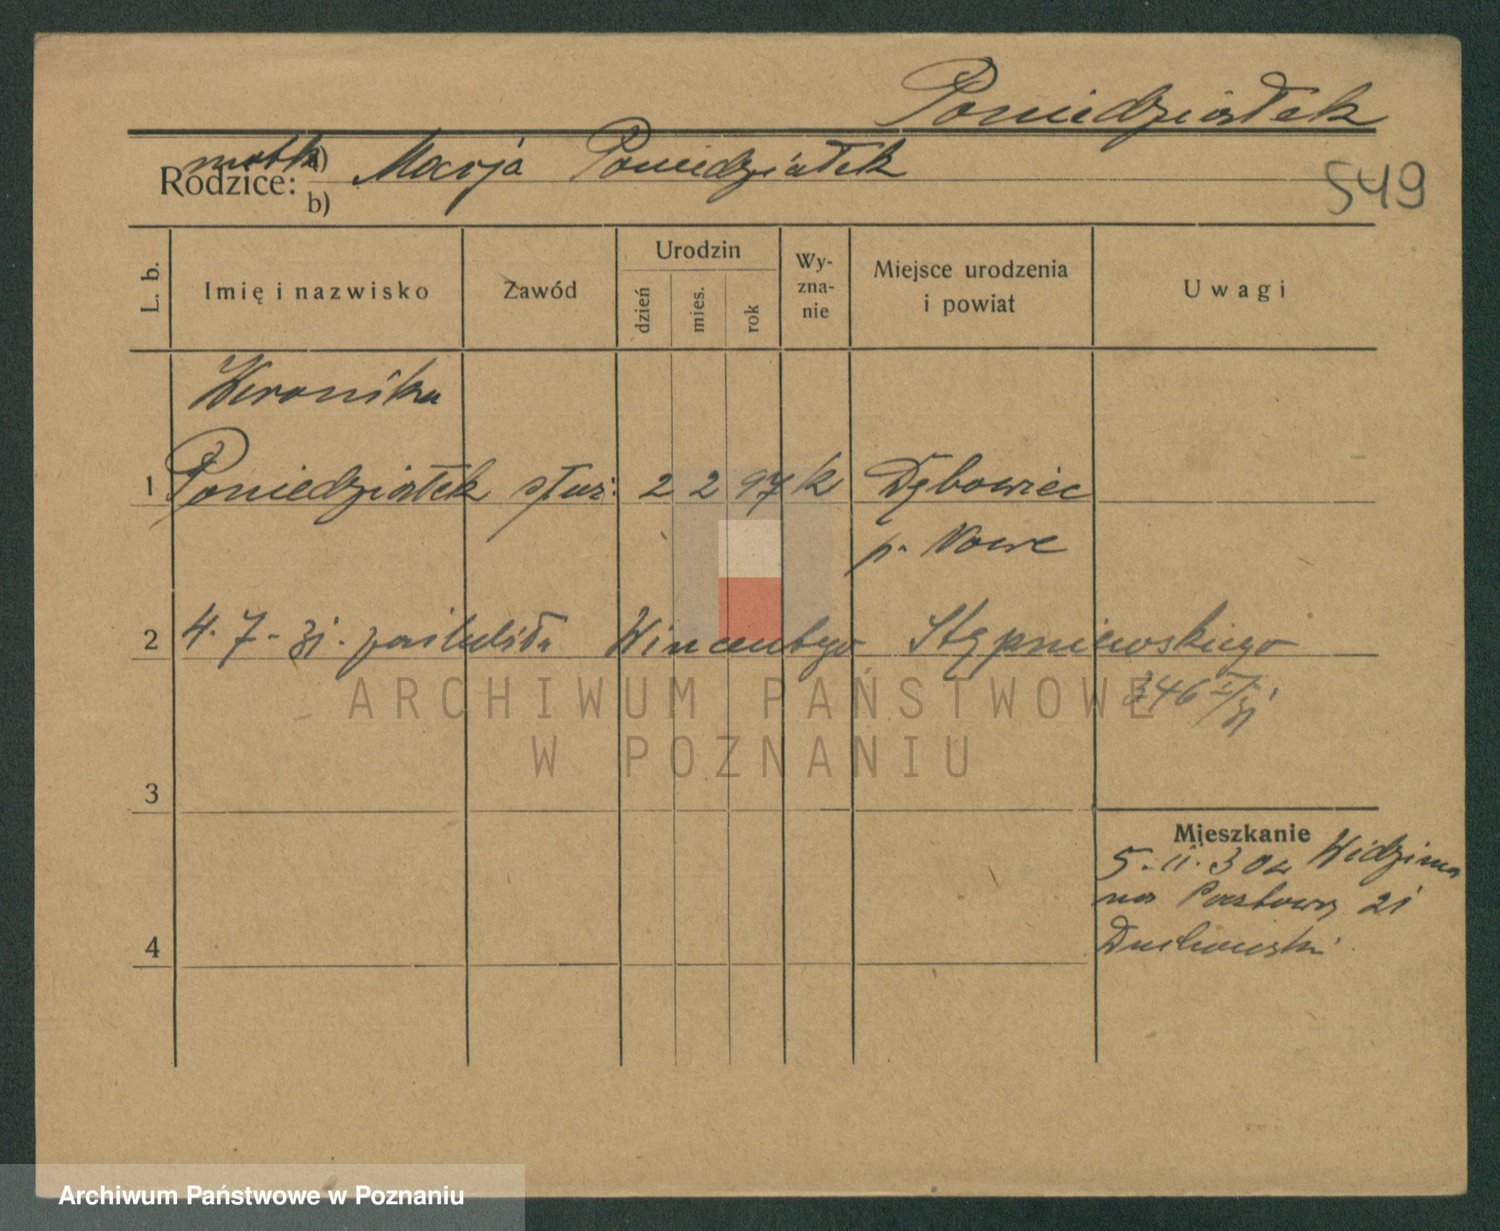 Poniedziałek
matka a) Marja Poniedziałek
Rodzice:
b)
549
L. b.
Imię i nazwisko
Zawód
Urodzin
dzień
mies.
rok
Wy-
zna-
nie
Miejsce urodzenia
i powiat
Uwagi
Weronika
1 Poniedziałek służ. 2 2 97 k Dębowiec
p. Nowe
2 4.7.31. zaślubiła Wincentego Stępniewskiego
346
ARCHIWUM PAŃSTWOWE
W POZNANIU
3
Mieszkanie
5.11.30 Widzima
na Pocztowy 21
4
Archiwum Państwowe w Poznaniu